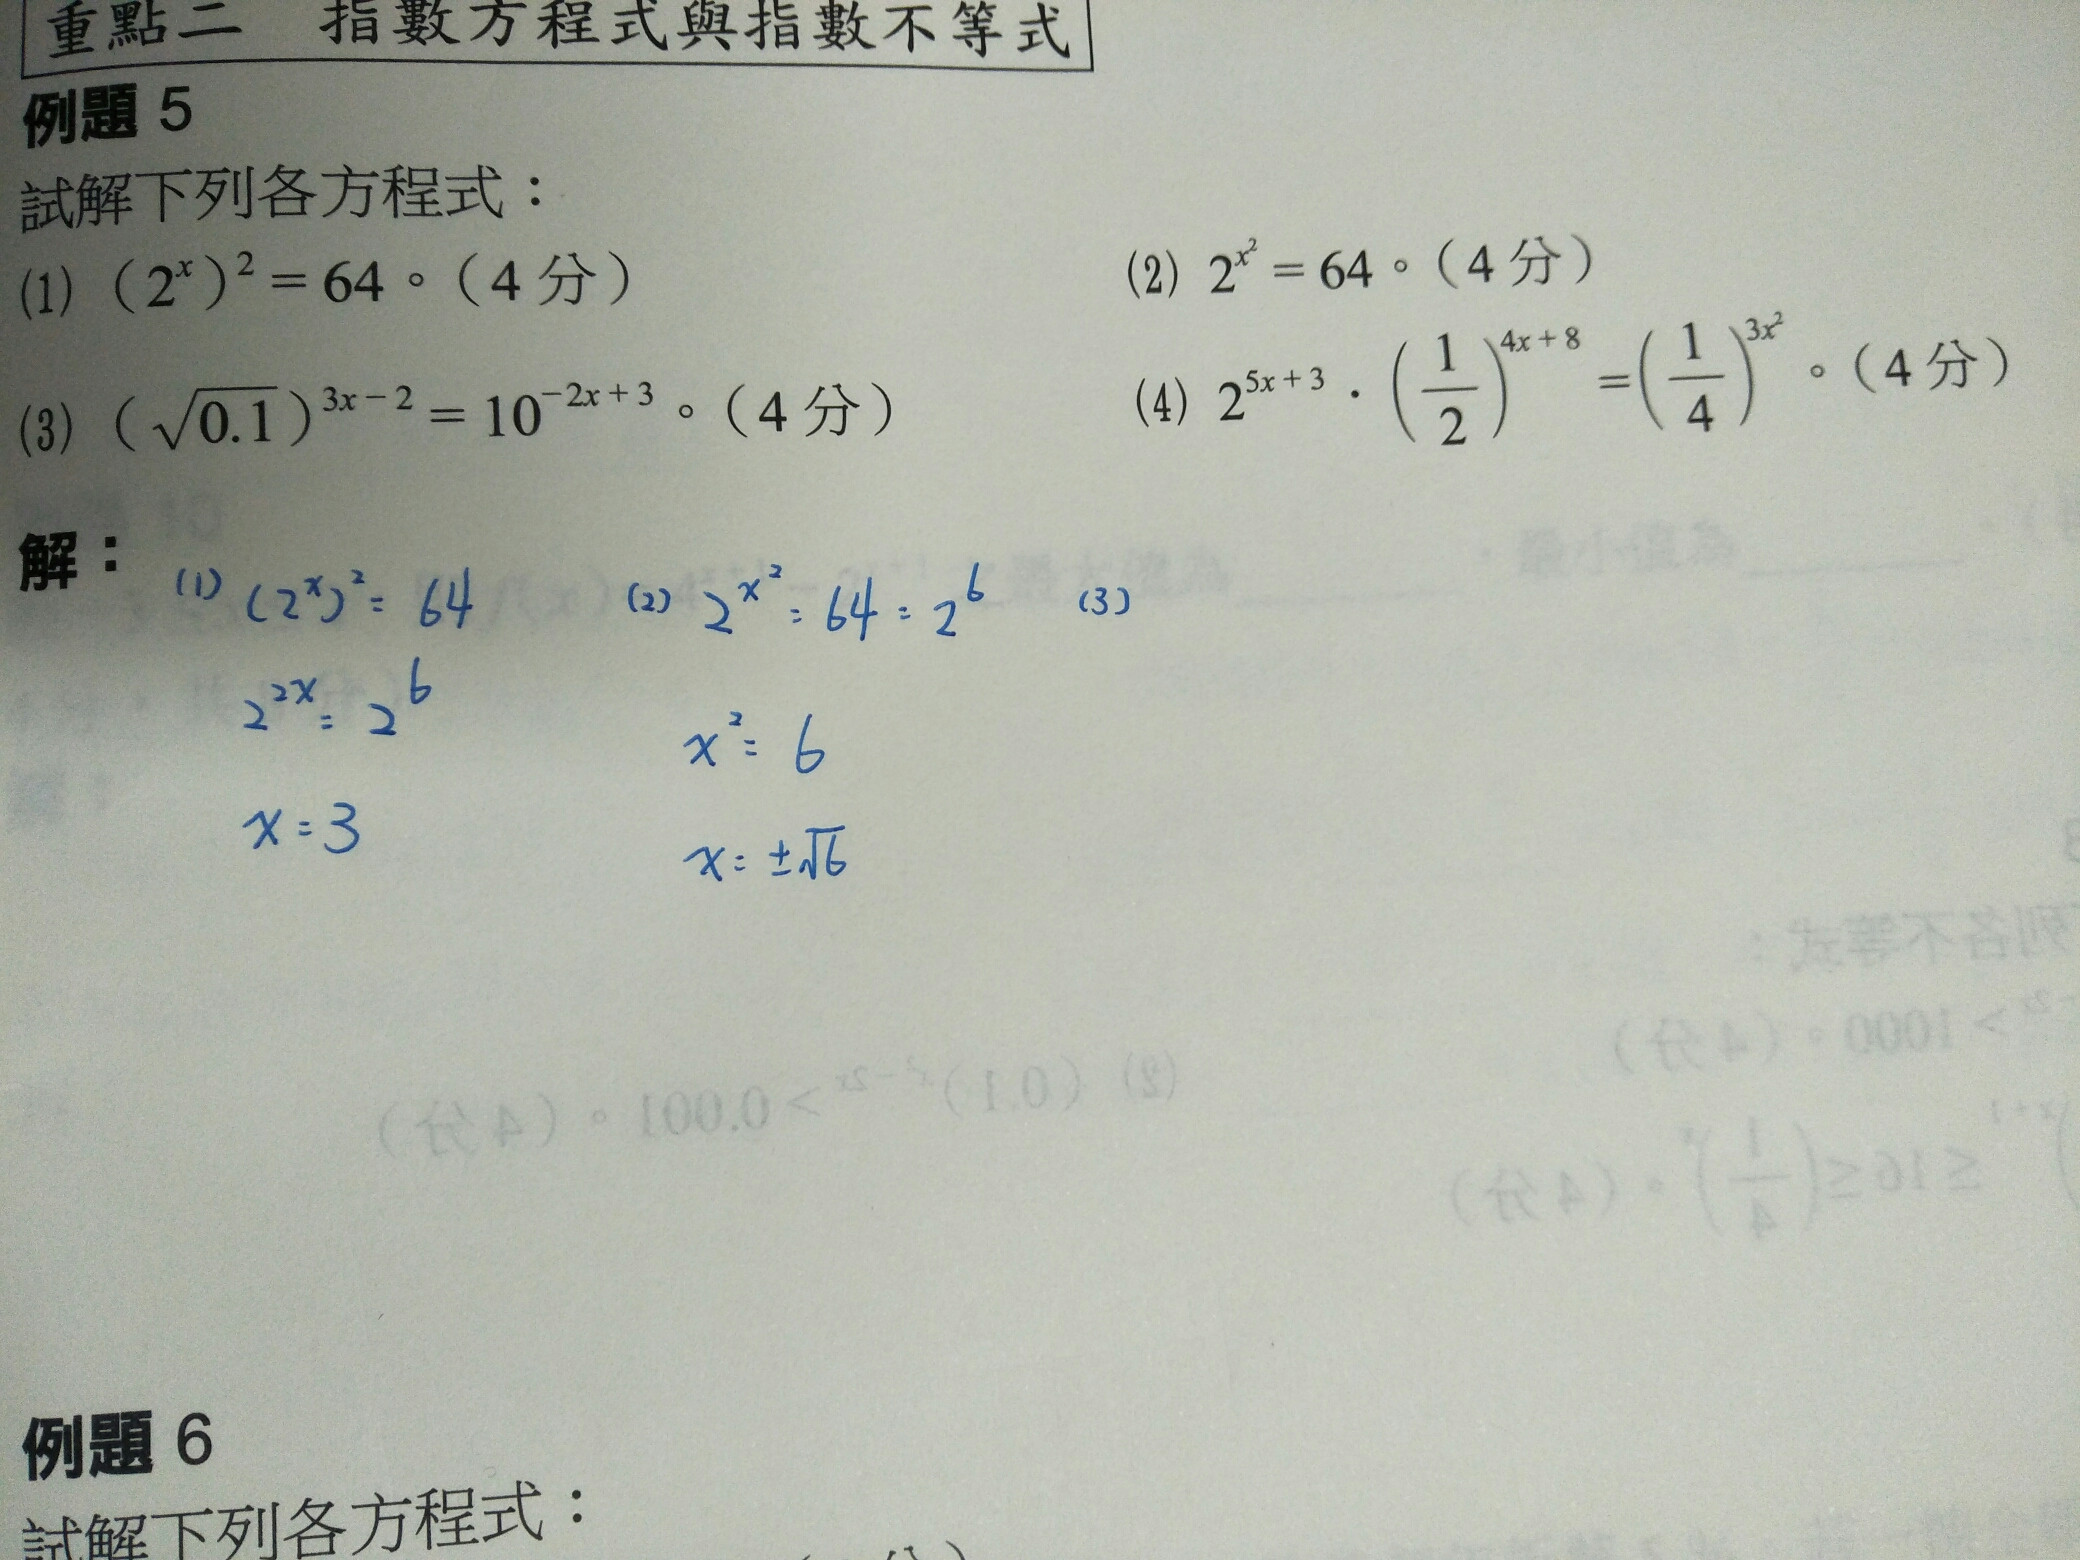 重點二　指數方程式與指數不等式
例題 5
試解下列各方程式：
(1) (2^x)^2 = 64。（4 分）
(2) 2^{x^2} = 64。（4 分）
(3) (√0.1)^{3x-2} = 10^{-2x+3}。（4 分）
(4) 2^{5x+3} · (1/2)^{4x+8} = (1/4)^{3x^2}。（4 分）
解：
(1) (2^x)^2 = 64
2^{2x} = 2^6
x = 3
(2) 2^{x^2} = 64 = 2^6
x^2 = 6
x = ±√6
(3)
例題 6
試解下列各方程式：